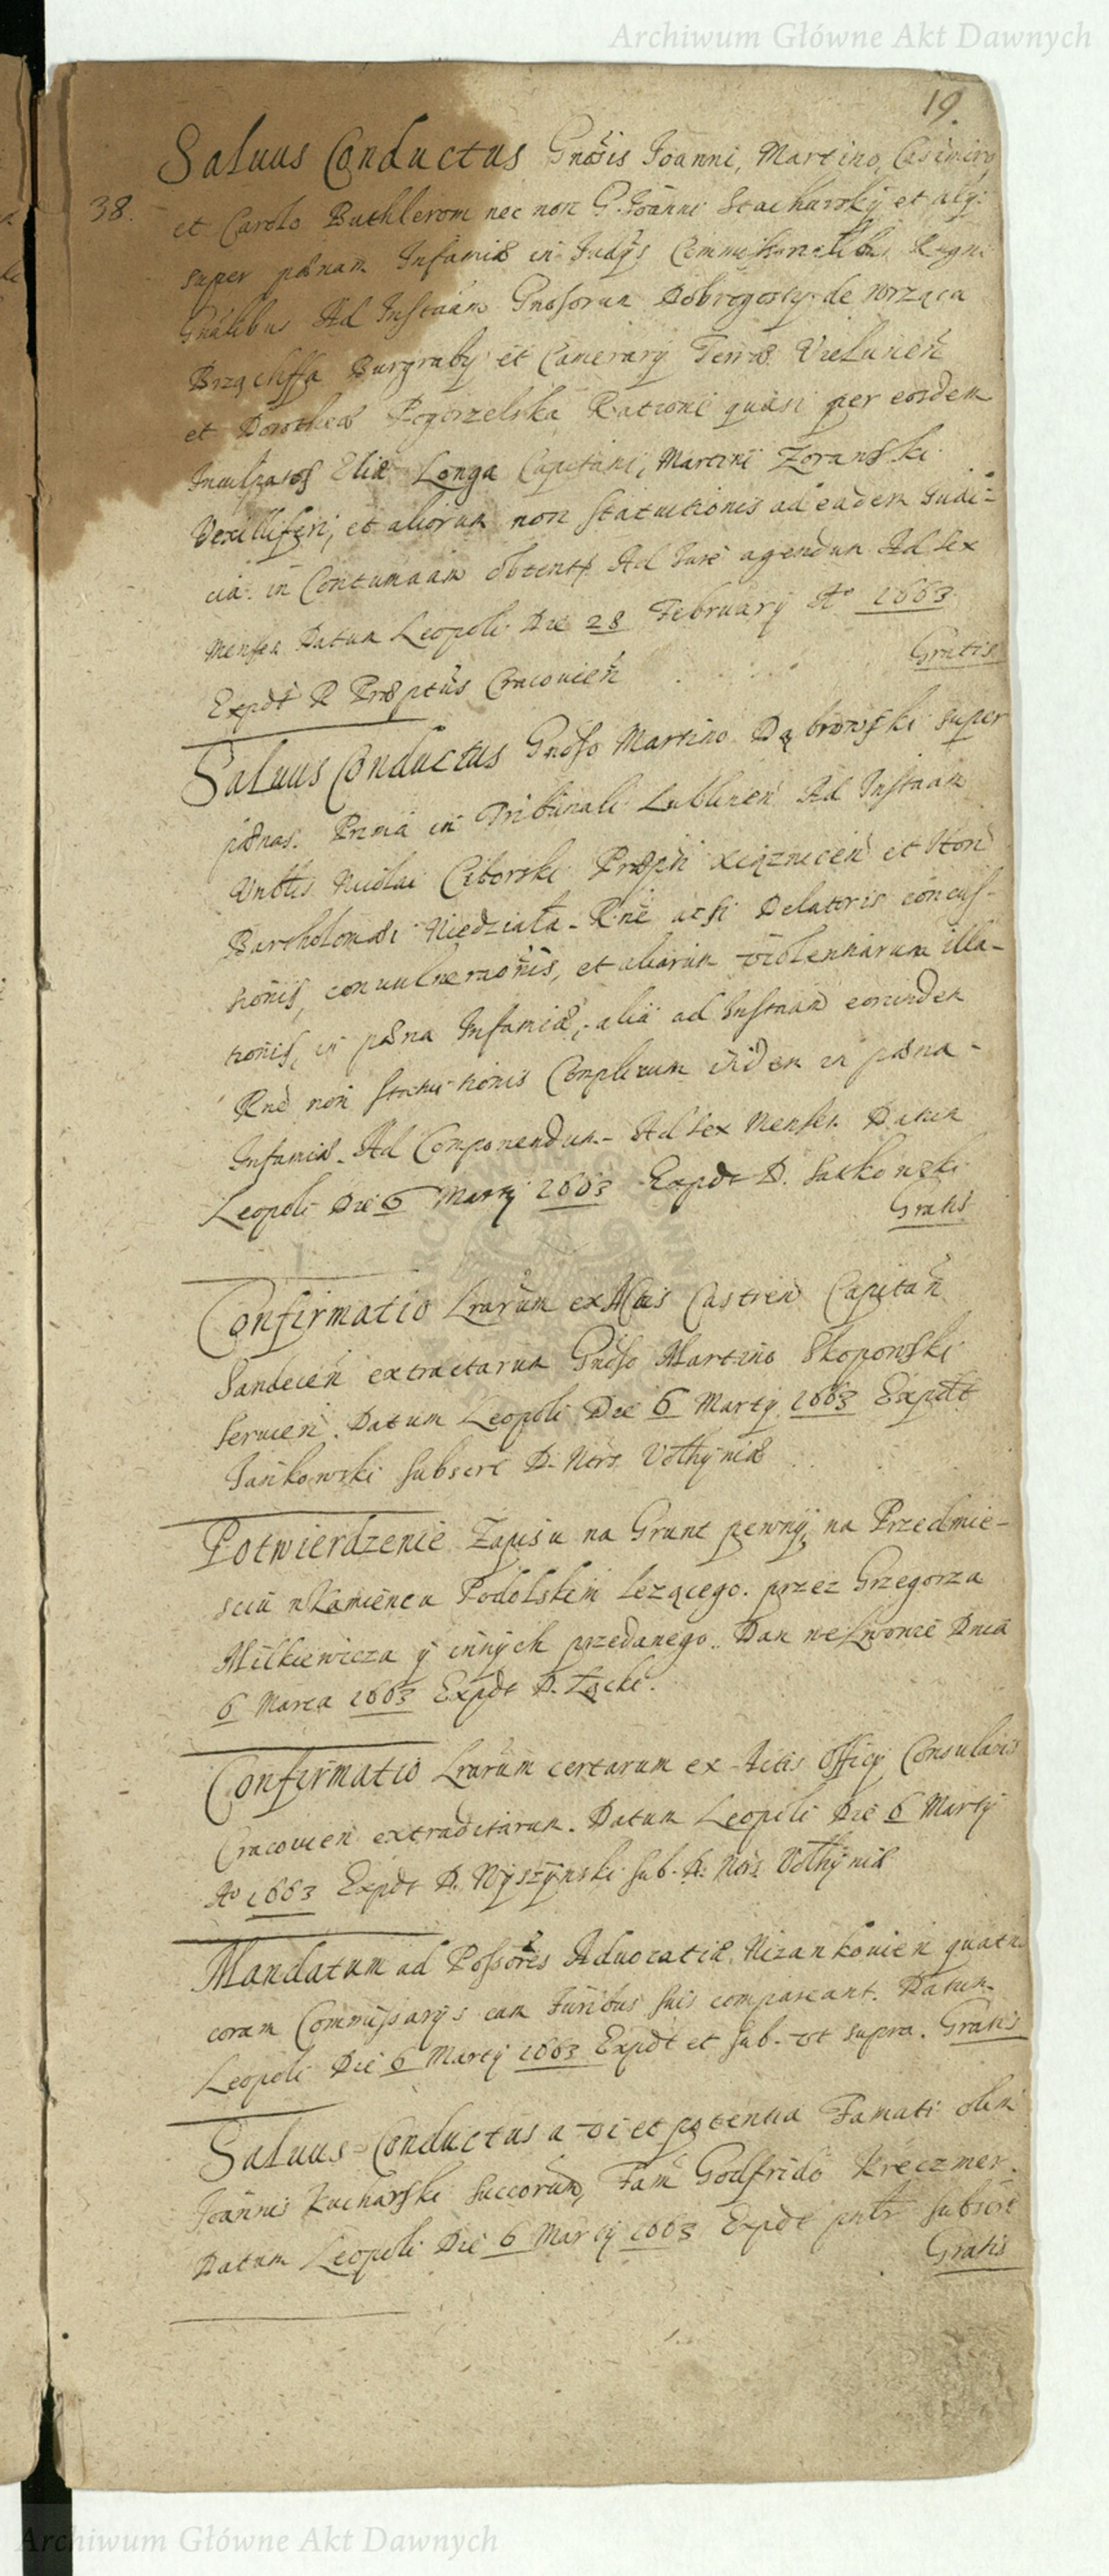 Archiwum Główne Akt Dawnych
19.
Saluus Conductus Gnosis Joanni, Martino, Casimiro
38.
et Carolo Buthlerom nec non G. Joanni Stacharskÿ et alÿ:
super pænam Infamiæ in Judÿs Regni
Gnalibus Ad Instãam Gnosorum Dobrogosty de
Burgrabÿ et Camerarÿ Terræ Vielunen
et Dorotheæ Pogorzelska Ratione quasi per eosdem
Inculpatos Eliæ Longa Capitani, Martini Zoranski
Vexilliferi, et aliorum non statuitionis ad eadem Judi=
cia in Contumaciam obtent Ad Jure agendum Ad sex
Menses Datum Leopoli Die 28 Februarÿ Aº 1663
Gratis
Expdt R Præptus Cracouien
Saluus Conductus Gnoso Martino Dąbrowski super
pænas. Prima in Tribunali Lublinen Ad Instãam
Nicolai Ciborski Præpti Xiąznicen et Hon
Bartholomæi Niedziała - Rne acsi Delatoris concus-
tionis, conuulnerationis, et aliarum violentiarum illa-
tionis, in pæna Infamiæ, alia ad Instãam eorundem
Rne non statuitionis Complicum ibidem in pæna -
Infamiæ - Ad Componendum - Ad sex Menses Datum
Leopoli Die 6 Martÿ 1663 Expdt D. Sackowski
Gratis
Confirmatio Lrarum ex Actis Castren Capitan
Sandecen extractarum Gnoso Martino Skoponski
seruien. Datum Leopoli Die 6 Martÿ 1663 Expdt
Jankowski subscrt D. Nors Vołhÿniæ
Potwierdzenie Zapisu na Grunt pewnÿ na Przedmie-
sciu w Kamiencu Podolskim lezącego. przez Grzegorza
Milkiewicza ÿ innÿch przedanego. Dan we Lwowie Dnia
6 Marca 1663 Expdt D. Łącki.
Confirmatio Lrarum certarum ex Actis Officÿ Consularis
Cracouien extraditarum. Datum Leopoli Die 6 Martÿ
Aº 1663 Expdt D. Wyszÿnski sub. D. Nors Vołhÿniæ
Mandatum ad Possores Aduocatiæ Nizankouien quatn
coram Commissarÿs cum Juribus suis compareant. Datum
Leopoli Die 6 Martÿ 1663 Expdt et sub. vt supra. Gratis
Saluus Conductus a vi et potentia Famati olim
Joannis Kucharski Succorum, Fam Godfrido Kreczmer.
Datum Leopoli Die 6 Martÿ 1663 Expdt subscrt
Gratis
Archiwum Główne Akt Dawnych